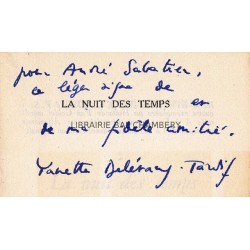 pour André Sabatier,
ce léger signe de
LA NUIT DES TEMPS
en
LIBRAIRIE BAL CHAMBERY
de ma fidèle amitié.
Yanette Delétang-Tardif